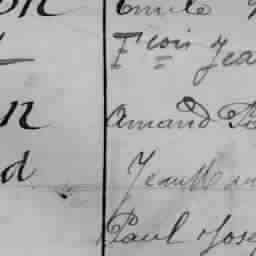 on Emile
Fcois Jea
n Amand Pa
d Jean M
Paul Jose